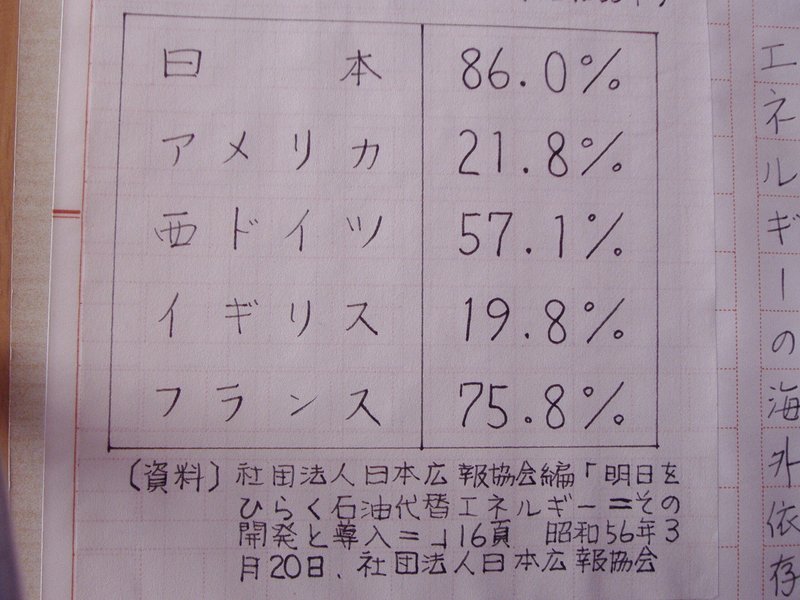 日本 86.0%
アメリカ 21.8%
西ドイツ 57.1%
イギリス 19.8%
フランス 75.8%
〔資料〕社団法人日本広報協会編「明日を
ひらく石油代替エネルギー=その
開発と導入=」16頁 昭和56年3
月20日、社団法人日本広報協会
エネルギーの海外依存